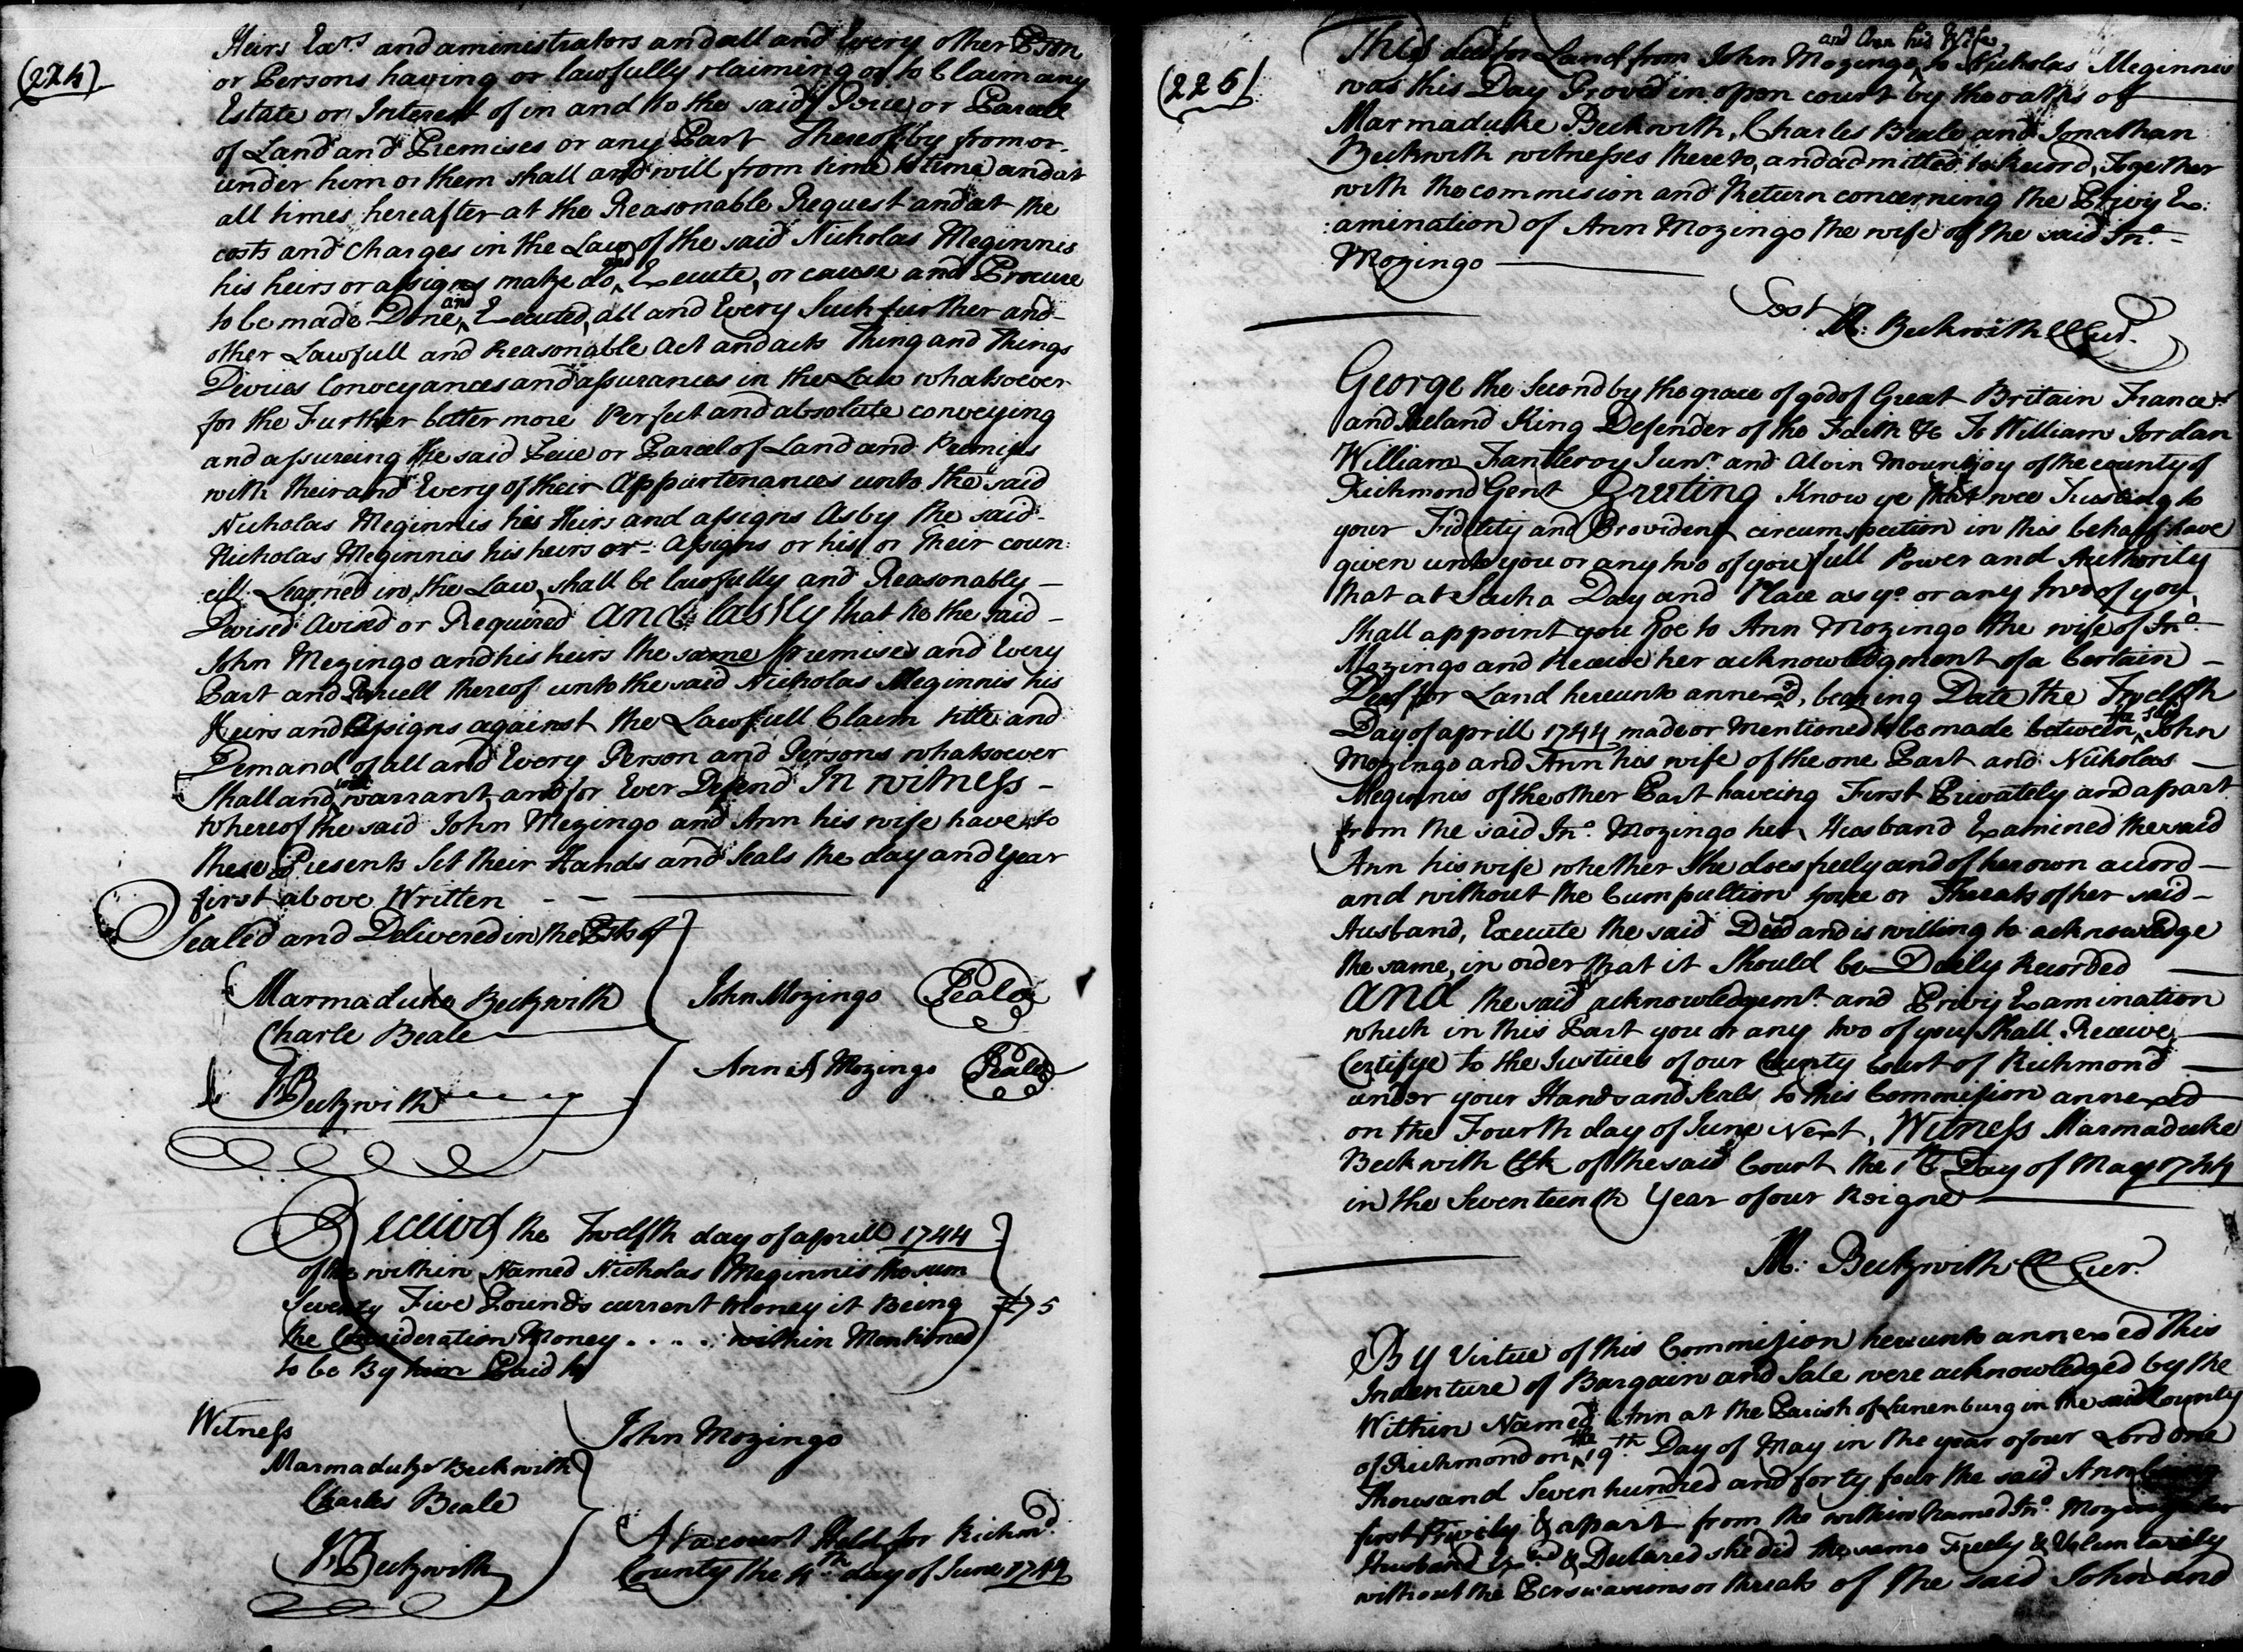 (224)
Heirs Exrs and aministrators and all and Every other Pson
or Persons having or lawfully claiming or to Claim any
Estate or Interest of in and to the said Peice or Parcell
of Land and Premises or any Part Thereof by from or
under him or them shall and will from time to time and at
all times hereafter at the Reasonable Request and at the
costs and Charges in the Law of the said Nicholas Meginnis
his heirs or assigns make do and Execute, or cause and Procure
to be made Done and Executed, all and Every Such further and
other Lawfull and Reasonable Act and acts Thing and Things
Devices Conveyances and assurances in the Law whatsoever
for the Further better more Perfect and absolute conveying
and assureing the said Peice or Parcel of Land and Premises
with their and Every of their Appurtenances unto the said
Nicholas Meginnis his Heirs and assigns As by the said
Nicholas Meginnis his heirs or Assigns or his or Their coun:
cill Learned in the Law, shall be lawfully and Reasonably
Devised Avised or Required And lastly that he the said
John Mozingo and his heirs the same premises and Every
Part and Parcell thereof unto the said Nicholas Meginnis his
Heirs and Assigns against the Lawfull Claim title and
Demand of all and Every Person and Persons whatsoever
Shall and will warrant and for Ever Defend In witness
whereof the said John Mozingo and Ann his wife have to
these Presents Set their Hands and Seals the day and Year
first above Written
Sealed and Delivered in the of
Marmaduke Beckwith
Charle Beale
Beckwith
John Mozingo Seal
Ann A Mozingo Seal
Received the Twelfth day of aprill 1744
of the within Named Nicholas Meginnis the sum
Seventy Five Pounds current Money it Being
the Consideration Money . . . . within Mentioned
to be By him Paid
£75
Witness
Marmaduke Beckwith
Charles Beale
Beckwith
John Mozingo
At a court Held for Richmd
County the 4th day of June 1744
(225)
This deed for Land from John Mozingo and Ann his Wife, to Nicholas Meginnis
was this Day Proved in open court by the oaths of
Marmaduke Beckwith, Charles Beale and Jonathan
Beckwith witnesses thereto, and admitted to Record, Together
with the commision and Return concerning the Privy Ex:
:amination of Ann Mozingo the wife of the said Jno
Mozingo
Test
M: Beckwith CCur.
George the Second by the grace of god of Great Britain France
and Ireland King Defender of the Faith &c To William Jordan
William Fantleroy Junr and Alvin Mountjoy of the county of
Richmond Gent Greeting Know ye that wee Trusting to
your Fidelity and Provident circumspection in this behalf have
given unto you or any two of you full Power and Authority
that at Such a Day and Place as yo or any two of you
Shall appoint you Goe to Ann Mozingo the wife of Jno
Mozingo and Receive her acknowledgment of a Certain
Deed for Land hereunto annexed, bearing Date the Twelfth
Day of aprill 1744 made or Mentioned to be made between the sd John
Mozingo and Ann his wife of the one Part and Nicholas
Meginnis of the other Part haveing First Privately and apart
from the said Jno Mozingo her Husband Examined the said
Ann his wife whether she does freely and of her own accord
and without the Cumpultion force or Threats of her said
Husband, Execute the said Deed and is willing to acknowledge
the same, in order that it Should be Duely Recorded
And the said acknowledgemt and Privy Examination
which in this Part you or any two of you Shall Receive
Certifye to the Justices of our County Court of Richmond
under your Hands and Seals to this Commission annexed
on the Fourth day of June Next, Witness Marmaduke
Beckwith Clk of the said Court the Day of May 1744
in the Seventeenth Year of our Reigne
M: Beckwith CCur.
By Virtue of this Commission hereunto annexed This
Indenture of Bargain and Sale were acknowledged by the
Within Named Ann at the Parish of Lunenburg in the said County
of Richmond on the 19th Day of May in the year of our Lord one
Thousand Seven hundred and forty four the said Ann being
first Privily & apart from the within Named Jno Mozingo her
Husband Exd & Declared she did the same Freely & Volumtarily
without the Perswasions or threats of the said John and